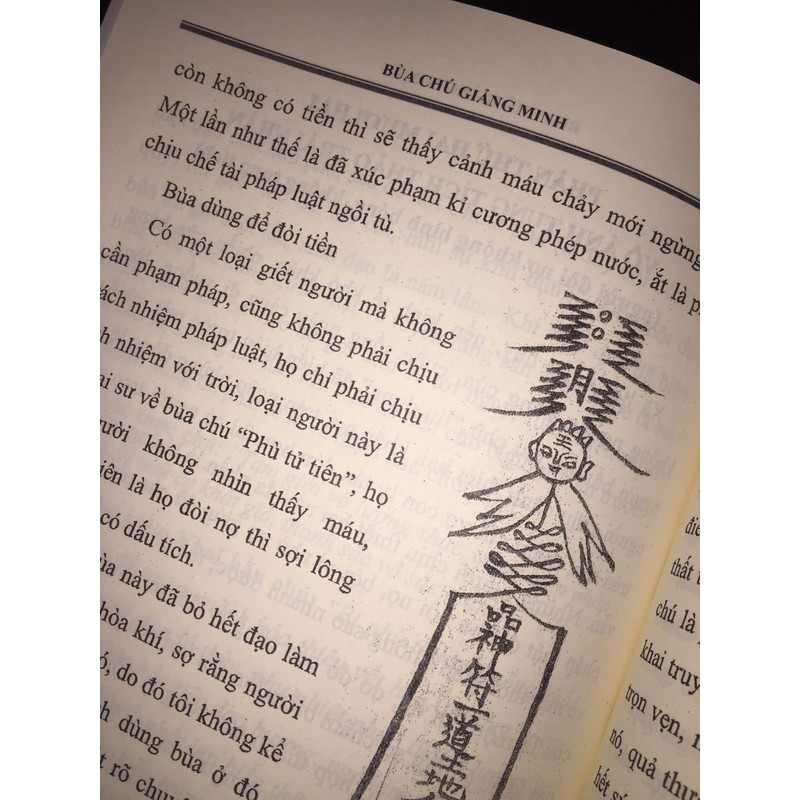 BÙA CHÚ GIẢNG MINH
còn không có tiền thì sẽ thấy cảnh máu chảy mới ngừng.
Một lần như thế là đã xúc phạm kỉ cương phép nước, ắt là p
chịu chế tài pháp luật ngồi tù.
Bùa dùng để đòi tiền
Có một loại giết người mà không
cần phạm pháp, cũng không phải chịu
ách nhiệm pháp luật, họ chỉ phải chịu
h nhiệm với trời, loại người này là
ai sư về bùa chú “Phù tử tiên”, họ
ười không nhìn thấy máu,
iên là họ đòi nợ thì sợi lông
có dấu tích.
ùa này đã bỏ hết đạo làm
hòa khí, sợ rằng người
ó, do đó tôi không kể
h dùng bùa ở đó
t rõ chuy
月
品神符一道土地
điề
thất t
chú là
khai truy
trọn vẹn, n
nó, quả thự
hết sú